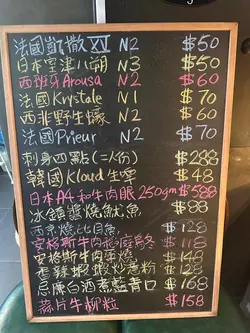 法國凱撒XI N2 $50
日本室津八朔 N3 $50
西班牙Arousa N2 $60
法國Krystale N1 $70
西非野生蠔 N2 $60
法國Prieur N2 $70
刺身四點(二人份) $288
韓國Kloud生啤 $48
日本A4和牛肉眼250gm $588
冰鎮醬燒魷魚 $88
西班牙 $128
安格斯牛肉 $168
安格斯牛肉 $148
香辣蝦 炒意粉 $128
忌廉白酒煮藍青口 $168
蒜片牛柳粒 $158